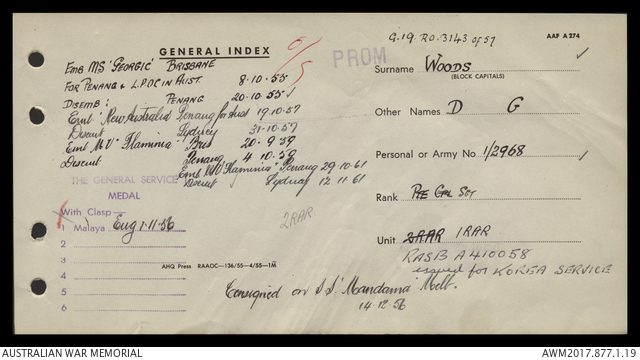 G.19. RO. 3143 of 57
AAF A 274
GENERAL INDEX
6/5
PROM
Emb MS 'Georgic' Brisbane
For Penang & L.P.O.C in Aust 8.10.55
Disemb: Penang 20.10.55
Emb. "New Australia" Penang for Aust 19.10.57
Disemb Sydney 31.10.57
Emb M.V "Flaminia" Bris 20.9.59
Disemb Penang 4.10.59
Emb MV "Flaminia" Penang 29.10.61
Disemb Sydney 12.11.61
THE GENERAL SERVICE
MEDAL
With Clasp
1 Malaya Eng 1-11-56
2
3
4
5
6
2RAR
AHQ Press RAAOC—136/55—4/55—1M
Consigned on S.S. "Mandama" Melb.
14.12.56
Surname WOODS
(BLOCK CAPITALS)
Other Names D G
Personal or Army No. 1/2968
Rank Pte Cpl Sgt
Unit 2RAR 1RAR
RASB A410058
issued for KOREA SERVICE
AUSTRALIAN WAR MEMORIAL
AWM2017.877.1.19